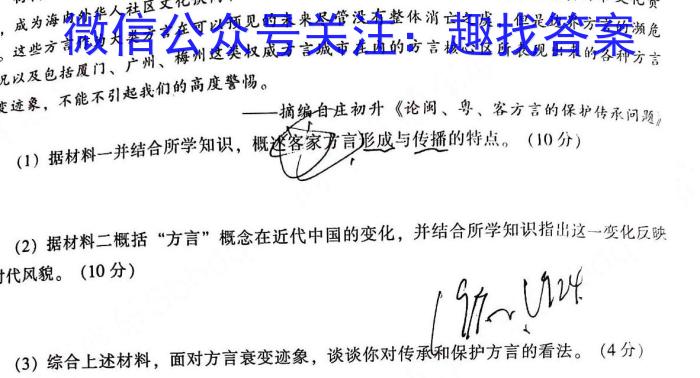 成为海内外华人社区文化
微信公众号关注：趣找答案
这些方言
可以预见的未来尽管没有整体消亡
以及包括厦门、广州、梅州这类权威方言城市在内的方言核心区所表现出来的各种方言
变迹象，不能不引起我们的高度警惕。
——摘编自庄初升《论闽、粤、客方言的保护传承问题》
(1) 据材料一并结合所学知识，概述客家方言形成与传播的特点。（10分）
(2) 据材料二概括“方言”概念在近代中国的变化，并结合所学知识指出这一变化反映
时代风貌。（10分）
(3) 综合上述材料，面对方言衰变迹象，谈谈你对传承和保护方言的看法。（4分）